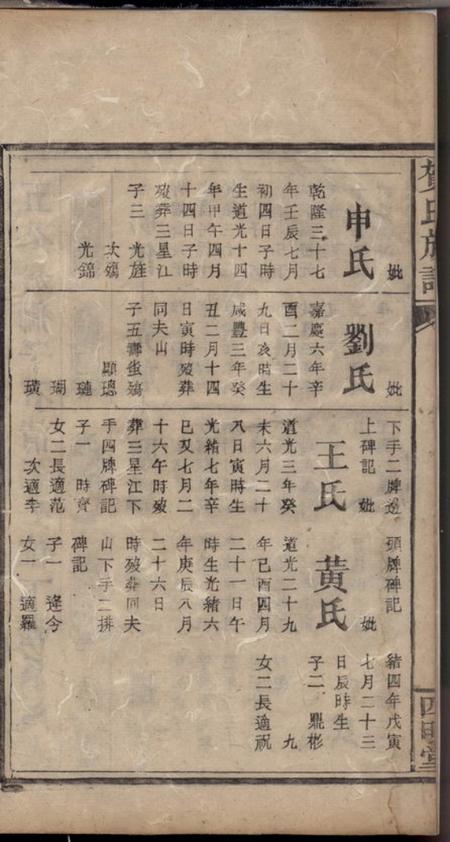 賀氏族譜
四明堂
妣
申氏
乾隆三十七
年壬辰七月
初四日子時
生道光十四
年甲午四月
十四日子時
歿葬三星江
子三 光旌
次殤
光錦
妣
劉氏
嘉慶六年辛
酉二月二十
九日亥時生
咸豐三年癸
丑二月十四
日寅時歿葬
同夫山
子五壽蚩殤
顯璁
璉
瑚
璜
下手二牌邊
上碑記 妣
王氏
道光三年癸
未六月二十
八日寅時生
光緒七年辛
巳又七月二
十六午時歿
葬三星江下
手四牌碑記
子一 時齊
女二長適范
次適李
頭牌碑記
黃氏
道光二十九
年己酉四月
二十一日午
時生光緒六
年庚辰八月
二十六日
時歿葬同夫
山下手二排
碑記
子一 逢今
女一 適羅
緒四年戊寅
妣
七月二十三
日辰時生
子二 鼎彬
九
女二長適祝